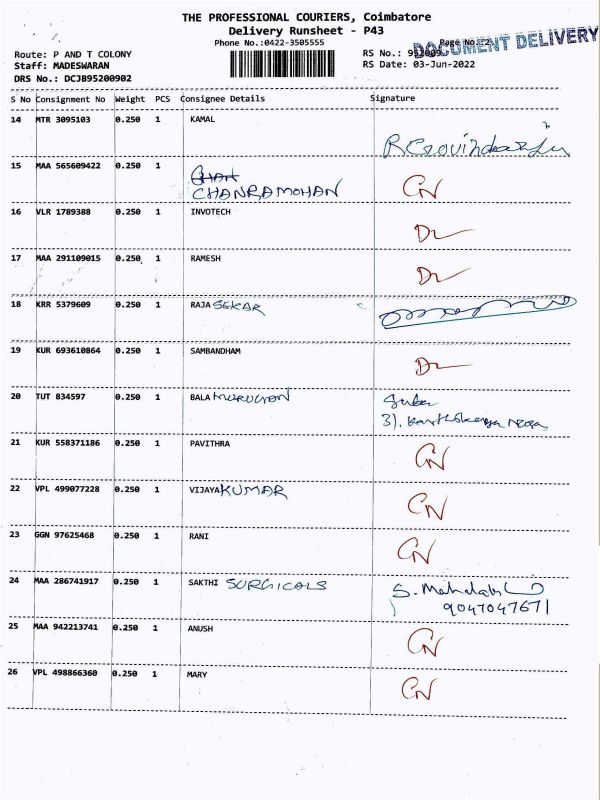 THE PROFESSIONAL COURIERS, Coimbatore
Delivery Runsheet - P43
Phone No.:0422-3505555 Page No.:2
DOCUMENT DELIVERY
Route: P AND T COLONY RS No.:
Staff: MADESWARAN RS Date: 03-Jun-2022
DRS No.: DCJB95200902
S No Consignment No Weight PCS Consignee Details Signature
14 MTR 3095103 0.250 1 KAMAL
15 MAA 565609422 0.250 1
CHANRAMOHAN CN
16 VLR 1789388 0.250 1 INVOTECH
DL
17 MAA 291109015 0.250 1 RAMESH
DL
18 KRR 5379609 0.250 1 RAJA SEKAR
19 KUR 693610864 0.250 1 SAMBANDHAM
DL
20 TUT 834597 0.250 1 BALA MURUGAN
21 KUR 558371186 0.250 1 PAVITHRA
CN
22 VPL 499077228 0.250 1 VIJAYA KUMAR
CN
23 GGN 97625468 0.250 1 RANI
CN
24 MAA 286741917 0.250 1 SAKTHI SURGICALS
9047047671
25 MAA 942213741 0.250 1 ANUSH
CN
26 VPL 498866360 0.250 1 MARY
CN